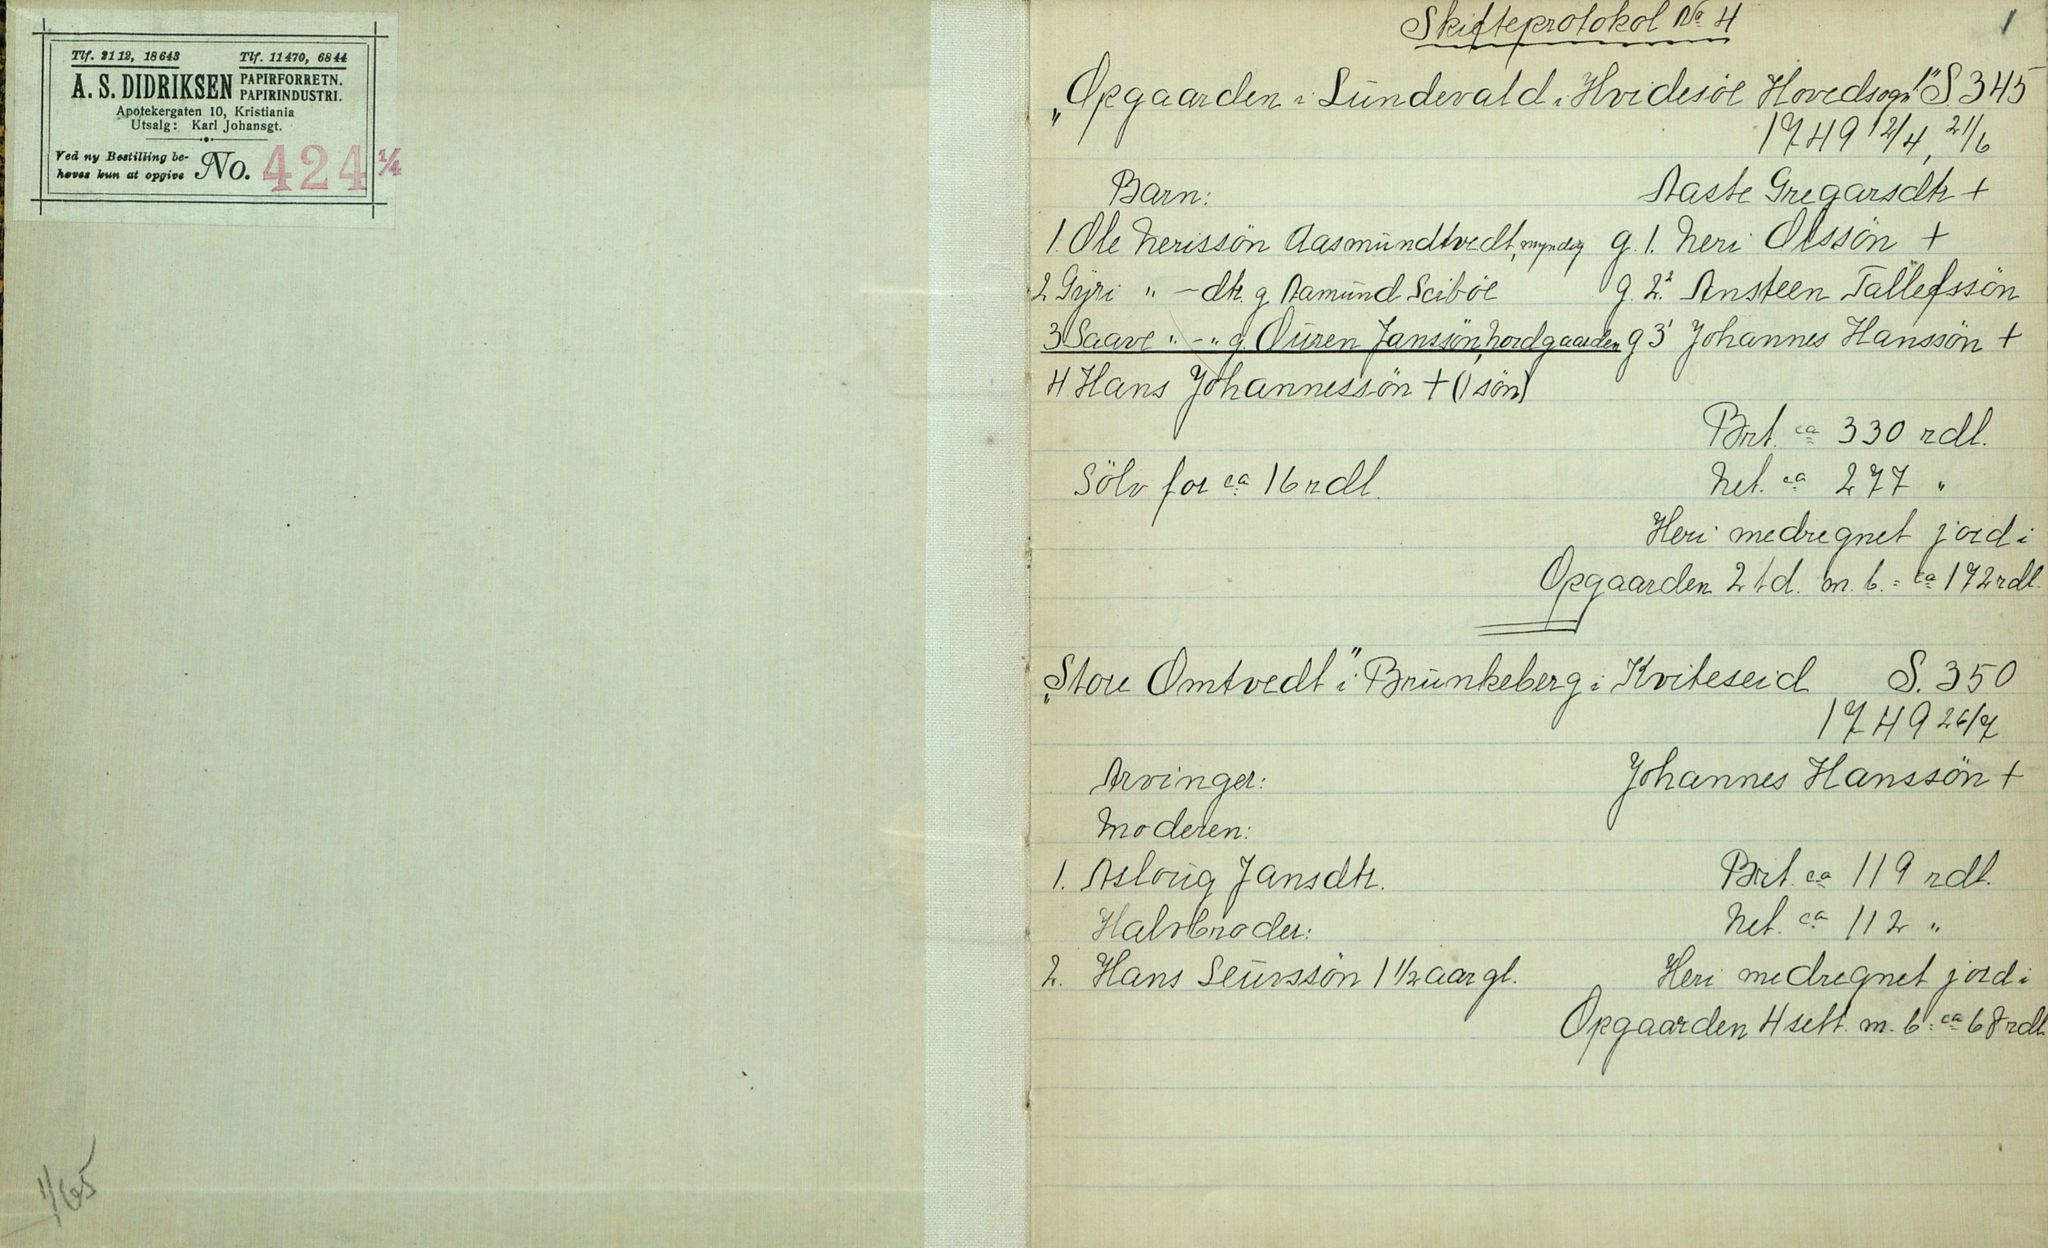 Tlf. 2112, 18643 Tlf. 11470, 6844
A. S. DIDRIKSEN PAPIRFORRETN. PAPIRINDUSTRI.
Apotekergaten 10, Kristiania
Utsalg: Karl Johansgt.
Ved ny Bestilling be-
høves kun at opgive No. 424 1/4
1/65
Skifteprotokol No 4
1
"Opgaarden i Lundevald i Hvidesöe Hovedsogn" S. 345
1749 12/4, 21/6
Barn: Aaste Gregarsdtr +
1. Ole Nerissön Aasmundtvedt, myndig g. 1. Neri Olssön +
2 Gyri " - dtr. g. Aamund Sciböe g. 2. Ansteen Tallefssön
3 Saave " - " g. Ouren Janssön, Nordgaarden g 3' Johannes Hanssön +
4. Hans Johannessön + (1 sön)
Brt. ca 330 rdl.
Sölv for ca 16 rdl. Net. ca 277 "
Heri medregnet jord i
Opgaarden 2 td. m. b. = ca 172 rdl.
"Store Omtvedt" i Brunkeberg i Kviteseid S. 350
1749 26/7
Arvinger: Johannes Hanssön +
Moderen:
1. Asloug Jansdtr. Brt. ca 119 rdl.
Halvbroder: Net. ca 112 "
2. Hans Leurssön 1 1/2 aar gl. Heri medregnet jord i
Opgaarden 4 sett. m. b = ca 68 rdl.